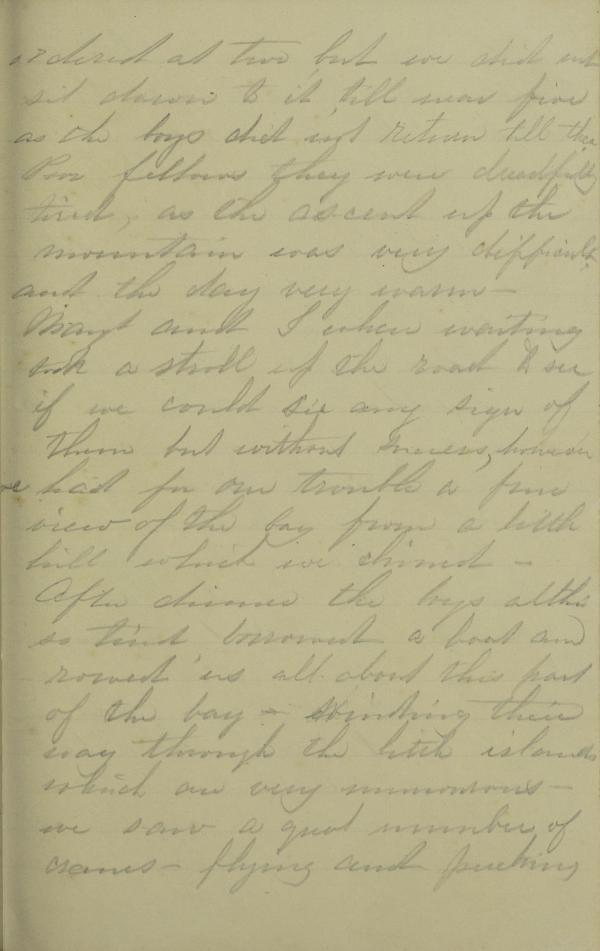 ordered at two, but we did not
sit down to it till near five
as the boys did not return till then
Poor fellows they were dreadfully
tired, as the ascent up the
mountain was very difficult
and the day very warm —
and I when waiting
took a stroll up the road to see
if we could see any sign of
them but without success, however
we had for our trouble a fine
view of the bay from a little
hill which we climed —
After dinner the boys altho
so tired borrowed a boat and
rowed us all about this part
of the bay — winding their
way through the little islands
which are very numerous —
we saw a great number of
cranes — flying and